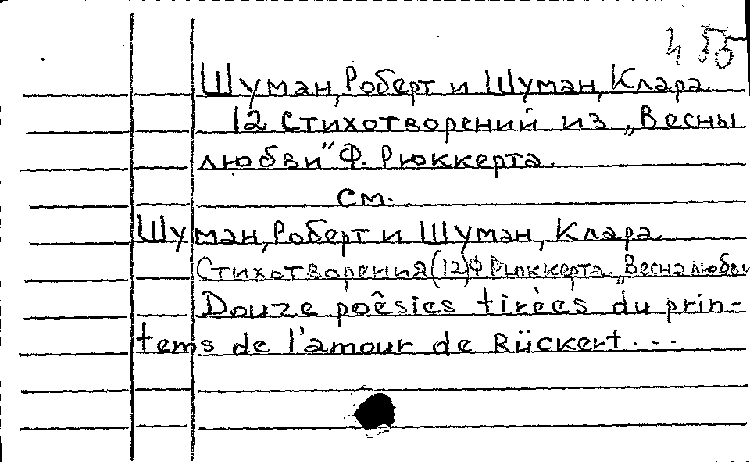 455
Шуман, Роберт и Шуман, Клара.
12 стихотворений из „Весны
любви" Ф. Рюккерта.
см.
Шуман, Роберт и Шуман, Клара
Стихотворения (12) Ф Рюккерта „Весна любви
Douze poêsies tirèes du prin-
tems de l'amour de Rückert...